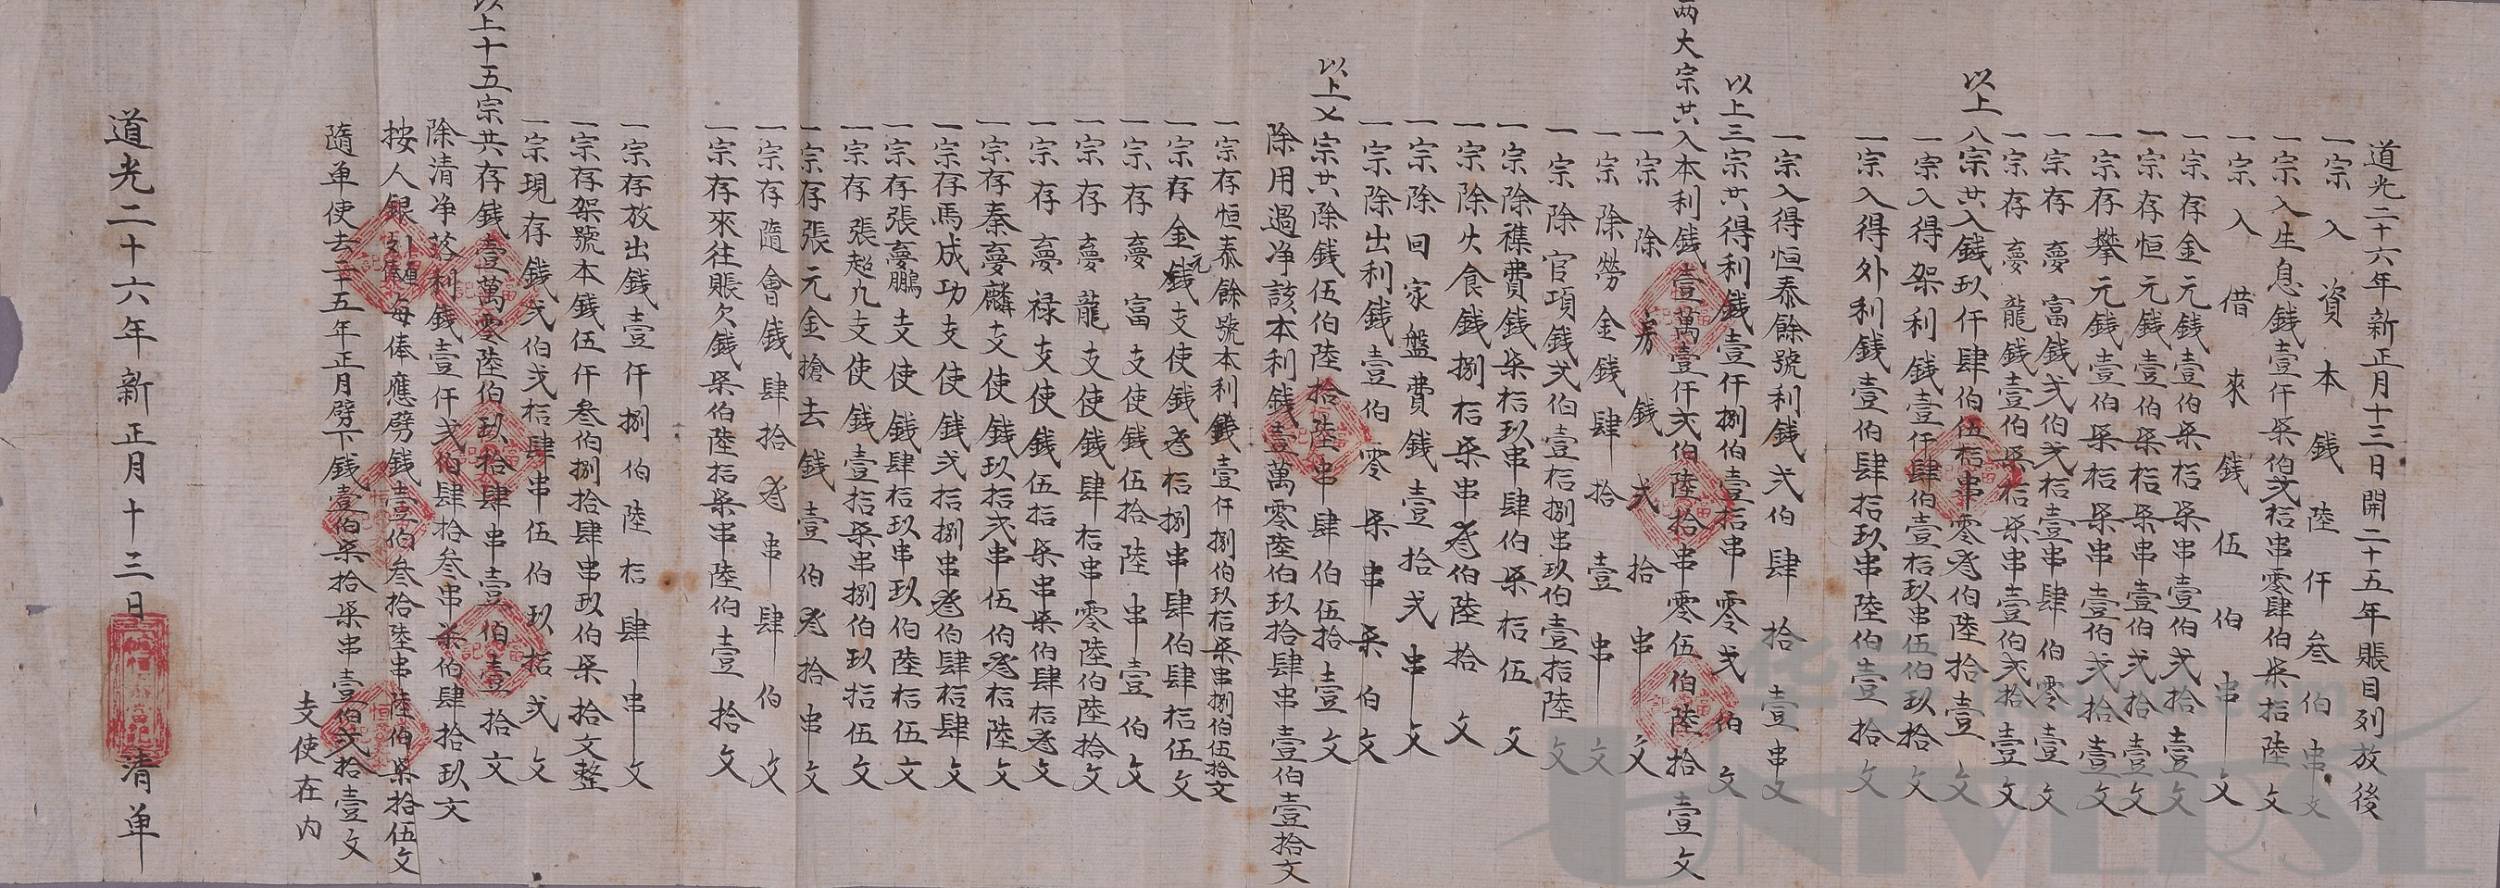 道光二十六年新正月十三日開二十五年賬目列放後
一宗入資本錢陸仟叁伯串文
一宗入生息錢壹仟柒伯弍拾串零肆伯柒拾陸文
一宗入借來錢伍伯串文
一宗存金元錢壹伯柒拾柒串壹伯弍拾壹文
一宗存恒元錢壹伯柒拾柒串壹伯弍拾壹文
一宗存攀元錢壹伯柒拾柒串壹伯弍拾壹文
一宗存夣富錢弍伯弍拾壹串肆伯零壹文
一宗存夣龍錢壹伯柒拾柒串壹伯弍拾壹文
以上八宗共入錢玖仟肆伯伍拾串零叄伯陸拾壹文
一宗入得架利錢壹仟肆伯壹拾玖串伍伯玖拾文
一宗入得外利錢壹伯肆拾玖串陸伯壹拾文
一宗入得恒泰餘號利錢弍伯肆拾壹串文
以上三宗共得利錢壹仟捌伯壹拾串零弍伯文
兩大宗共入本利錢壹萬壹仟弍伯陸拾串零伍伯陸拾壹文
一宗除房錢弍拾串文
一宗除勞金錢肆拾壹串文
一宗除官項錢弍伯壹拾捌串玖伯壹拾陸文
一宗除襍費錢柒拾玖串肆伯柒拾伍文
一宗除火食錢捌拾柒串叄伯陸拾文
一宗除回家盤費錢壹拾弍串文
一宗除出利錢壹伯零柒串柒伯文
以上〤宗共除錢伍伯陸拾陸串肆伯伍拾壹文
除用過净該本利錢壹萬零陸伯玖拾肆串壹伯壹拾文
一宗存恒泰餘號本利錢壹仟捌伯玖拾柒串捌伯伍拾文
一宗存金元錢支使錢叄拾捌串肆伯肆拾伍文
一宗存夣富支使錢伍拾陸串壹伯文
一宗存夣龍支使錢肆拾串零陸伯陸拾文
一宗存夣禄支使錢伍拾柒串柒伯肆拾叄文
一宗存秦夣麟支使錢玖拾弍串伍伯叄拾陸文
一宗存馬成功支使錢弍拾捌串叄伯肆拾肆文
一宗存張夣鵬支使錢肆拾玖串玖伯陸拾伍文
一宗存張超九支使錢壹拾柒串捌伯玖拾伍文
一宗存張元金搶去錢壹伯叄拾串文
一宗存隨會錢肆拾叄串肆伯文
一宗存來往賬欠錢柒伯陸拾柒串陸伯壹拾文
一宗存放出錢壹仟捌伯陸拾肆串文
一宗存架號本錢伍仟叁伯捌拾肆串玖伯柒拾文整
一宗現存錢弍伯弍拾肆串伍伯玖拾弍文
以上十五宗共存錢壹萬零陸伯玖拾肆串壹伯壹拾文
除清净落利錢壹仟弍伯肆拾叁串柒伯肆拾玖文
按人銀每俸應劈錢壹伯叁拾陸串陸伯柒拾伍文
隨單使去二十五年正月劈下錢壹伯柒拾柒串壹伯弍拾壹文
支使在內
道光二十六年新正月十三日 清单
UNIVERSE